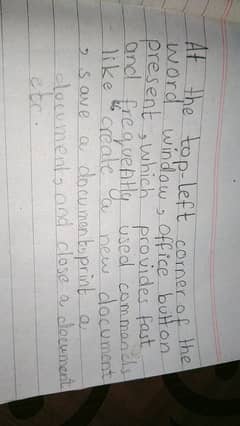 At the top-left corner of the
word window, office button
present, which provides fast
and frequently used commands
like create a new document
, save a document, print a
document, and close a document
etc.